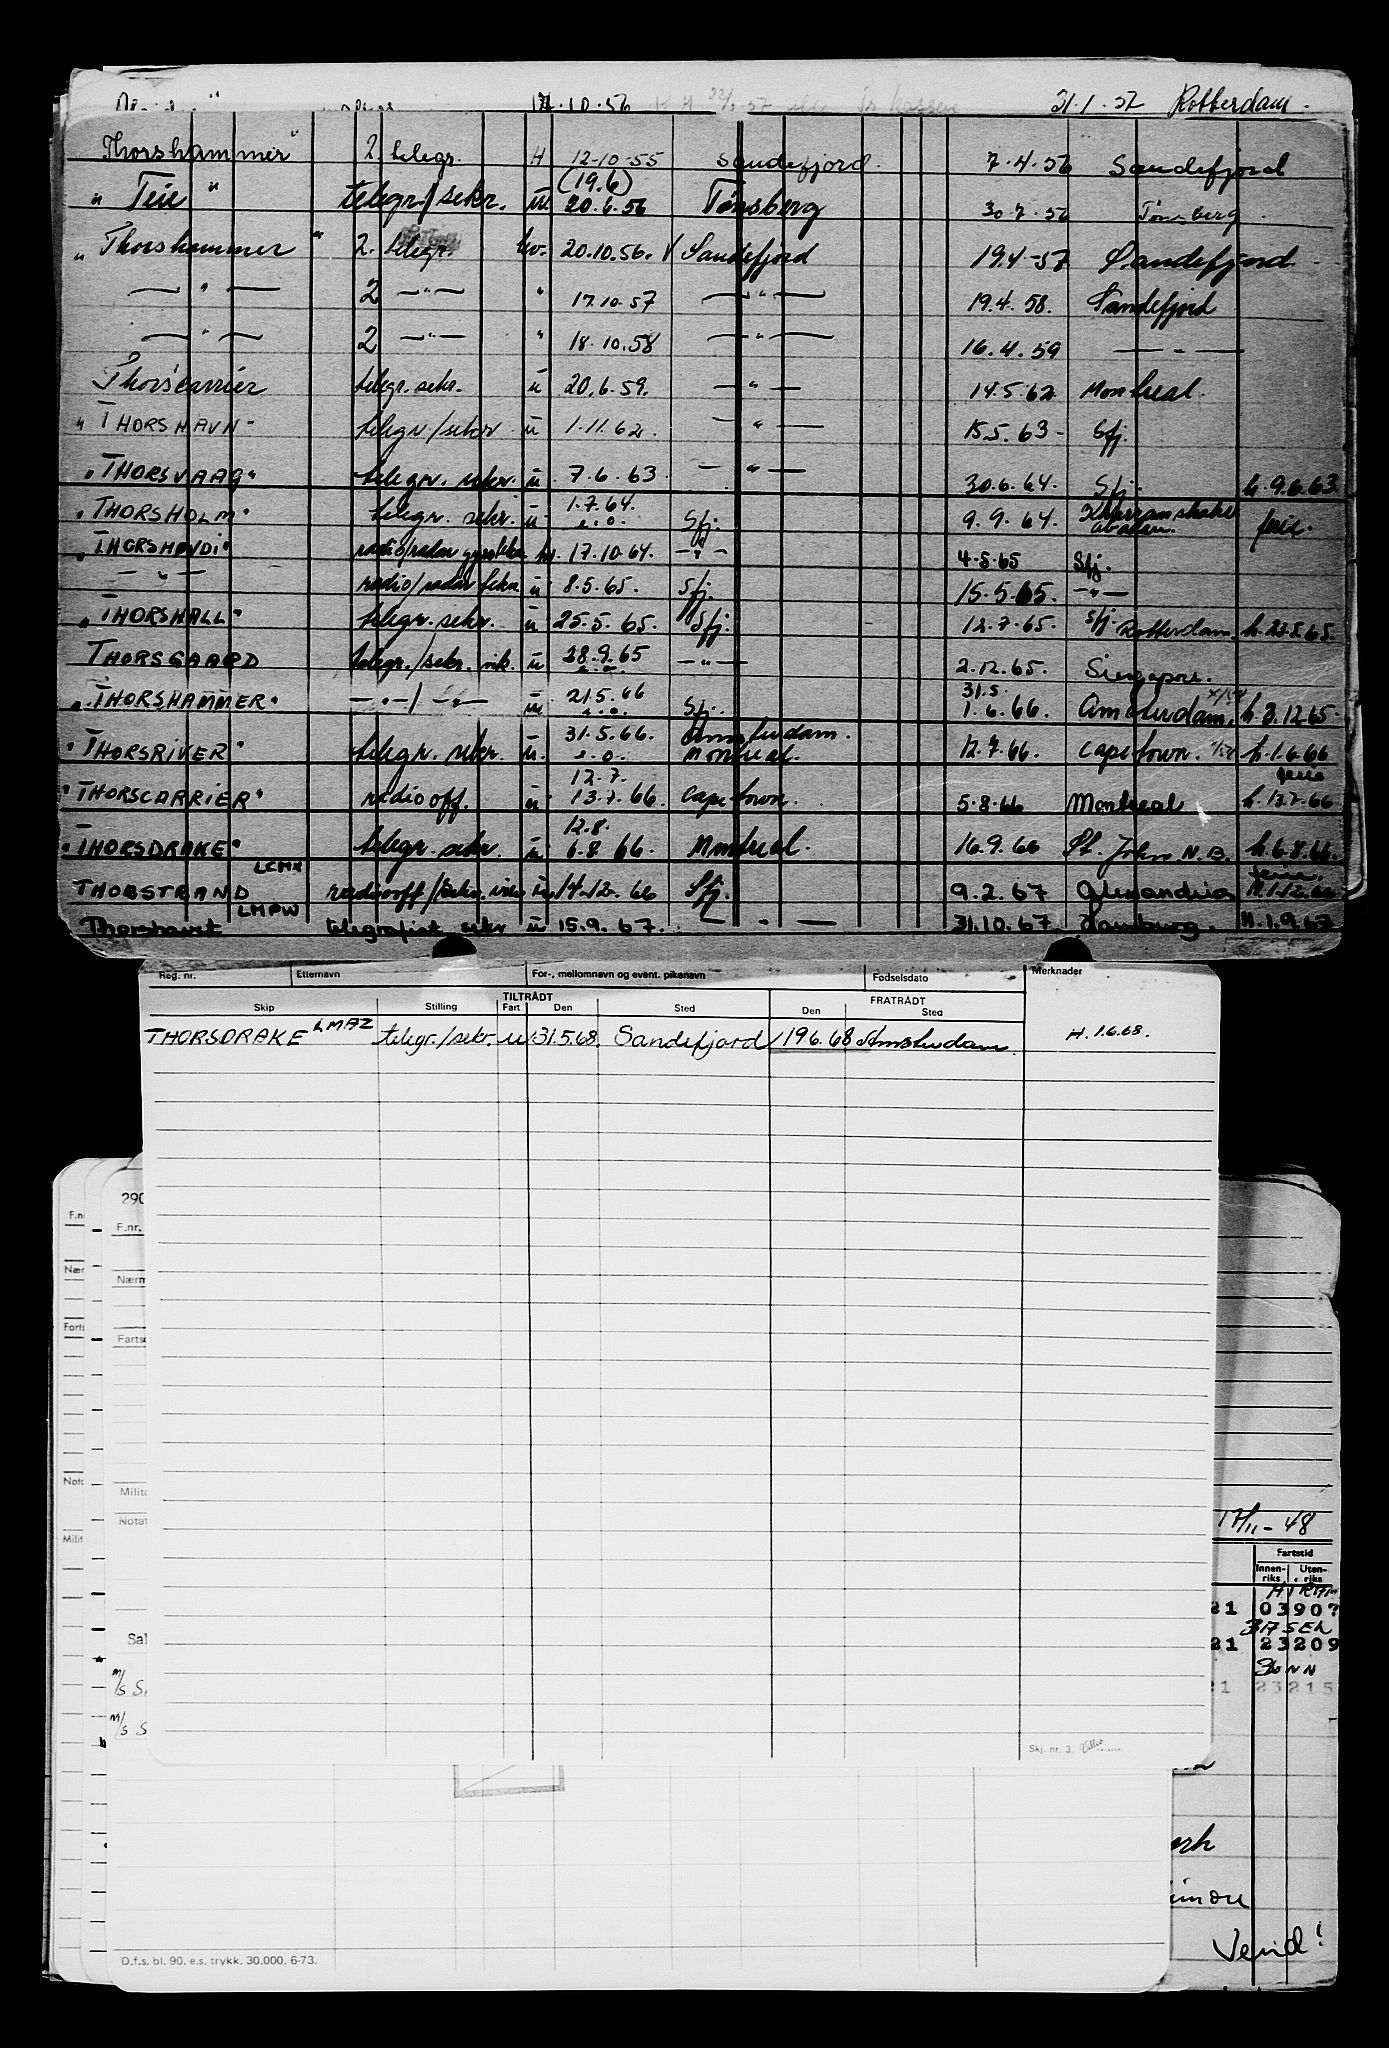 12.10.56 31.1.57 Rotterdam.
Thorshammer" 2. telegr. H 12-10-55 Sandefjord. 7.4.56 Sandefjord
(19.6)
" Teie " telegr./sekr. u. 20.6.56 Tønsberg 30.7.56 Tønsberg.
" Thorshammer " 2. telegr. hv. 20.10.56. Sandefjord 19.4-57 Sandefjord
— " — 2 —"— " 17.10.57 — " — 19.4.58. Sandefjord
— " — 2 —"— " 18.10.58 — " — 16.4.59 — " —
Thorscarrier telegr. sekr. u 20.6.59. — " — 14.5.62 Montreal.
" THORSHAVN" telegr/sekr u 1.11.62. — " — 15.5.63 - Sfj.
"THORSVAAG" telegr. sekr. u. 7.6.63 — " — 30.6.64. Sfj. h. 9.6.63
"THORSHOLM" telegr. sekr. u 1.7.64. e.o. Sfj. 9.9.64. ferie.
"THORSHØVDI" hv. 17.10.64. —"— 4.5.65 Sfj.
— " — radio/radar u 8.5.65. Sfj. 15.5.65. —"—
"THORSHALL" telegr. sekr. u 25.5.65. Sfj. 12.7.65. Sfj. Rotterdam. h. 23.5.65.
THORSGAARD telegr./sekr. vik. u 28.9.65 —"— 2.12.65. Singapore.
31.5.
"THORSHAMMER" —"—/—"— u 21.5.66 e.o. Sfj. 1.6.66. Amsterdam, h. 3.12.65.
"THORSRIVER" telegr. sekr. u. 31.5.66. e.o. Amsterdam. Montreal. 12.7.66. Cape town. h. 1.6.66
12.7. ferie
"THORSCARRIER" radiooff. u 13.7.66. Cape town. 5.8.66 Montreal h. 13.7.66
12.8.
"THORSDRAKE" telegr. sekr. u. 6.8.66. Montreal. 16.9.66 St. John N.B. h. 6.8.66.
LCMX ferie.
THORSTRAND radiooff/sekr. u. 14.12.66 Sfj. 9.2.67 Alexandria h. 1.12.66
LMPW
Thorshavet telegrafist sekr u 15.9.67. — " — 31.10.67. Hamburg. H. 1.9.67
Reg. nr. Etternavn For-, mellomnavn og event. pikenavn Fødselsdato Merknader
TILTRÅDT FRATRÅDT
Skip Stilling Fart Den Sted Den Sted
THORSDRAKE LMAZ telegr./sekr. u 31.5.68. Sandefjord 19.6.68 Amsterdam. H. 1.6.68.
290
F.nr.
F.nr.
Nærm
Fartsc
Milita
Notat
Milit
Sal
m/s S
m/s S
17/11-48
Fartstid
Innen-riks Uten-riks
21 03907
21 23209
21 23215
Skj. nr. 3.
Vend!
D.f.s. bl. 90. e.s. trykk. 30.000. 6-73.